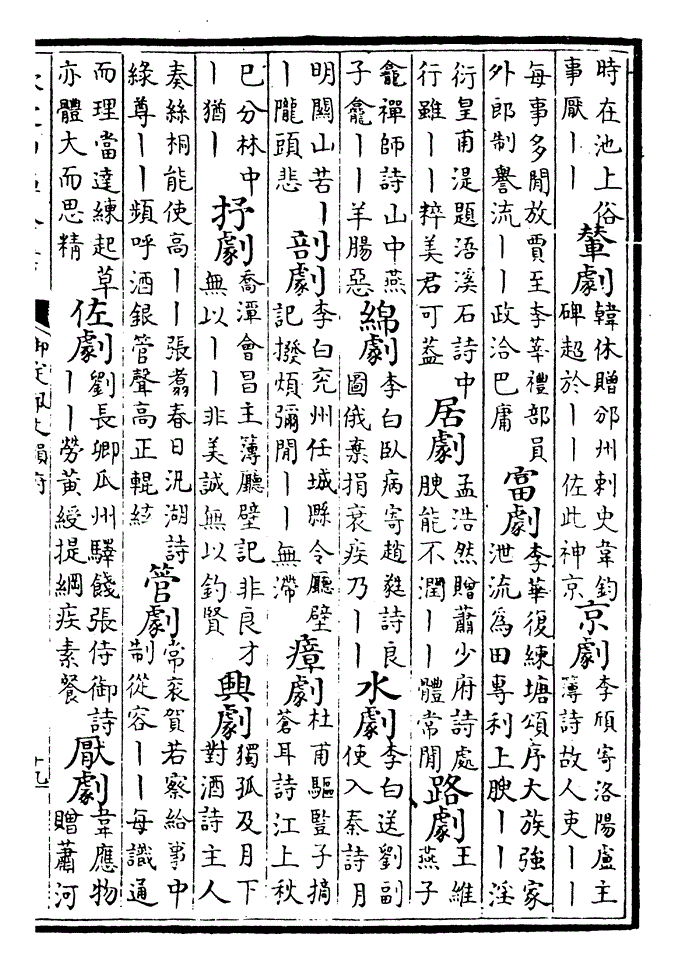 時在池上俗
事厭丨丨
輦劇
韓休贈邠州刺史韋鈞
碑超於丨丨佐此神京
京劇
李頎寄洛陽盧主
簿詩故人吏丨丨
每事多閒放賈至李華禮部員
外郎制譽流丨丨政洽巴庸
富劇
李華復練塘頌序大族強家
泄流為田專利上腴丨丨淫
衍皇甫湜題浯溪石詩中
行雖丨丨粹美君可葢
居劇
孟浩然贈蕭少府詩處
腴能不潤丨丨體常閒
路劇
王維
燕子
龕禪師詩山中燕
子龕丨丨羊腸惡
綿劇
李白臥病寄趙蕤詩良
圖俄棄捐衰疾乃丨丨
水劇
李白送劉副
使入秦詩月
明關山苦丨
丨隴頭悲
剖劇
李白兖州任城縣令廳壁
記撥煩彌閒丨丨無滯
瘴劇
杜甫驅豎子摘
蒼耳詩江上秋
巳分林中
丨猶丨
抒劇
喬潭會昌主薄廳壁記非良才
無以丨丨非美誠無以釣賢
興劇
獨孤及月下
對酒詩主人
奏絲桐能使高丨丨張翥春日汎湖詩
綠尊丨丨頻呼酒銀管聲高正輥絃
管劇
常袞賀若察給事中
制從容丨丨每識通
而理當達練起草
亦體大而思精
佐劇
劉長卿瓜州驛餞張侍御詩
丨丨勞黃綬提綱疾素餐
厭劇
韋應物
贈蕭河
御定佩文韻府
十九